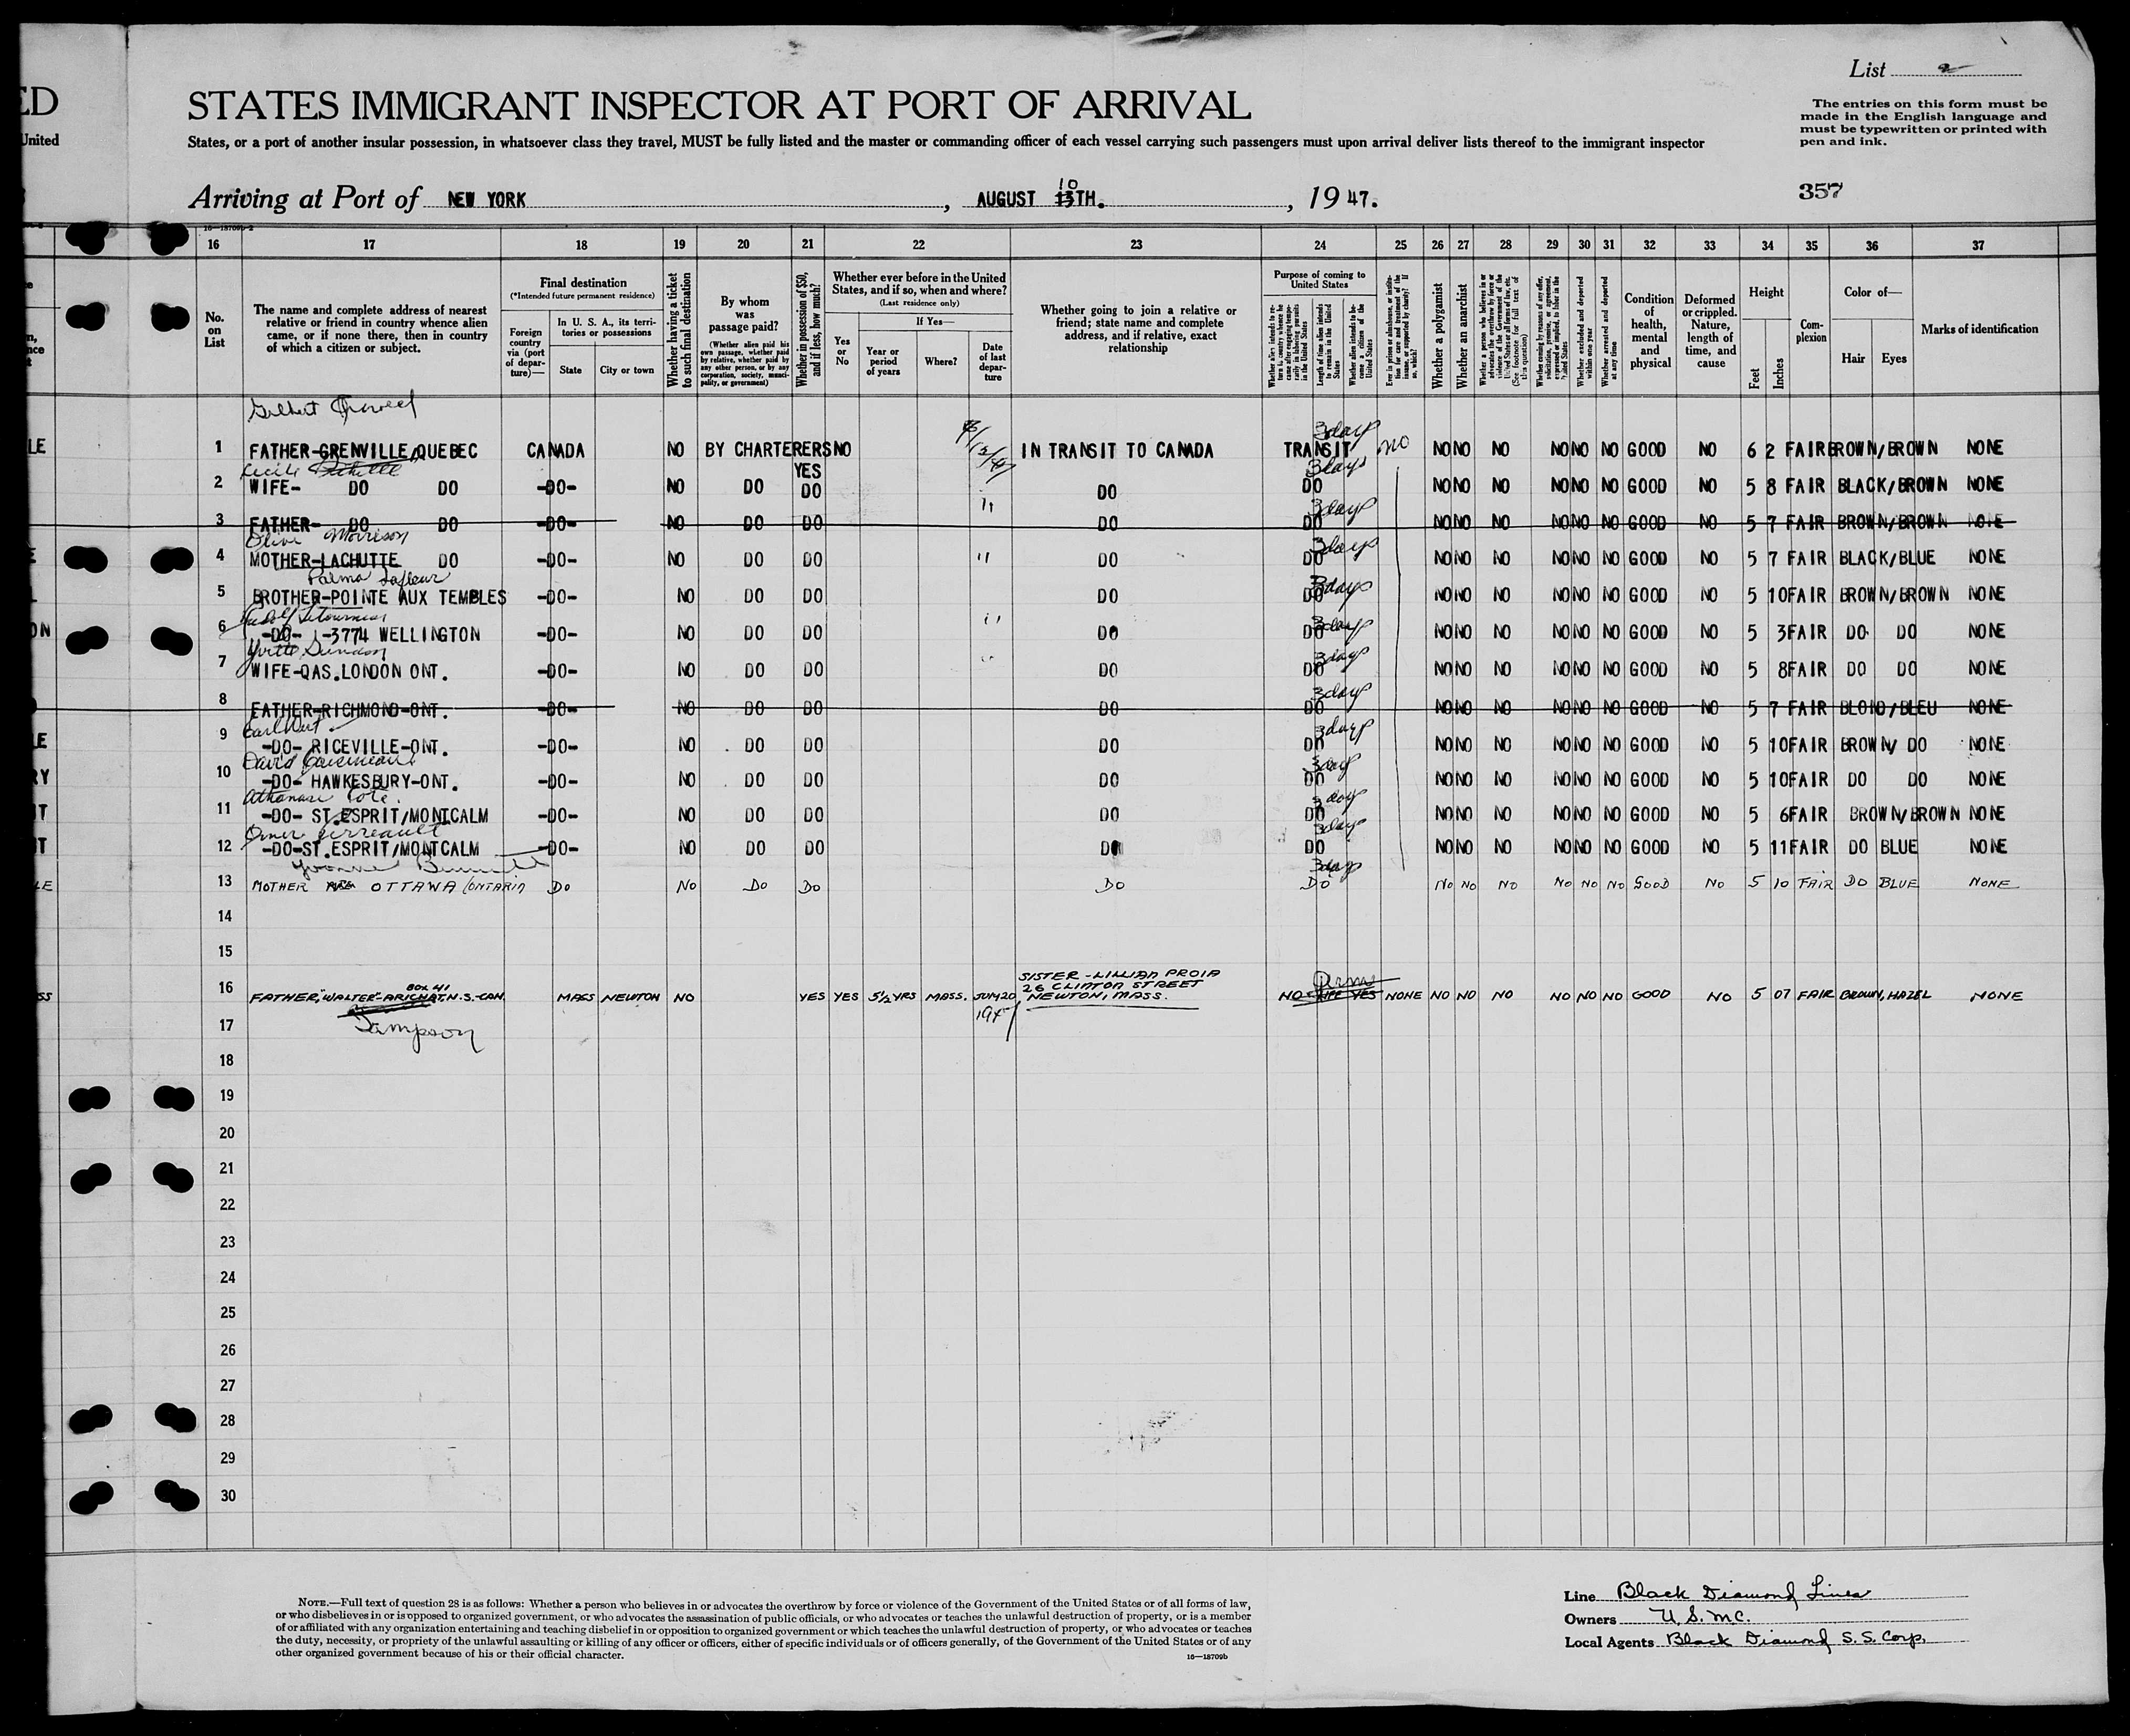 List 2
ED
STATES IMMIGRANT INSPECTOR AT PORT OF ARRIVAL
The entries on this form must be
made in the English language and
must be typewritten or printed with
pen and ink.
United
States, or a port of another insular possession, in whatsoever class they travel, MUST be fully listed and the master or commanding officer of each vessel carrying such passengers must upon arrival deliver lists thereof to the immigrant inspector
Arriving at Port of NEW YORK, AUGUST 13TH. 10, 1947.
357
16—18709b-2
16 17 18 19 20 21 22 23 24 25 26 27 28 29 30 31 32 33 34 35 36 37
No. on List
The name and complete address of nearest relative or friend in country whence alien came, or if none there, then in country of which a citizen or subject.
Final destination
(*Intended future permanent residence)
Foreign country via (port of departure)—
In U. S. A., its territories or possessions
State
City or town
Whether having a ticket to such final destination
By whom was passage paid?
(Whether alien paid his own passage, whether paid by relative, whether paid by any other person, or by any corporation, society, municipality, or government)
Whether in possession of $50, and if less, how much?
Whether ever before in the United States, and if so, when and where?
(Last residence only)
Yes or No
If Yes—
Year or period of years
Where?
Date of last departure
Whether going to join a relative or friend; state name and complete address, and if relative, exact relationship
Purpose of coming to United States
Length of time alien intends to remain in the United States
Whether alien intends to become a citizen of the United States
Whether a polygamist
Whether an anarchist
Whether excluded and deported within one year
Whether arrested and deported at any time
Condition of health, mental and physical
Deformed or crippled. Nature, length of time, and cause
Height
Feet
Inches
Complexion
Color of—
Hair
Eyes
Marks of identification
Gilbert
3 days
LE 1 FATHER-GRENVILLE, QUEBEC CANADA NO BY CHARTERERS YES NO IN TRANSIT TO CANADA TRANSIT NO NO NO NO NO NO NO GOOD NO 6 2 FAIR BROWN/BROWN NONE
Cecile
3 days
2 WIFE- DO DO -DO- NO DO DO " DO DO NO NO NO NO NO NO GOOD NO 5 8 FAIR BLACK/BROWN NONE
3 days
3 FATHER- DO DO -DO- NO DO DO DO DO NO NO NO NO NO NO GOOD NO 5 7 FAIR BROWN/BROWN NONE
Olive Morrison
3 days
4 MOTHER-LACHUTTE DO -DO- NO DO DO " DO DO NO NO NO NO NO NO GOOD NO 5 7 FAIR BLACK/BLUE NONE
Palma Lafleur
3 days
5 BROTHER-POINTE AUX TEMBLES -DO- NO DO DO DO DO NO NO NO NO NO NO GOOD NO 5 10 FAIR BROWN/BROWN NONE
3 days
ON 6 -DO- -3774 WELLINGTON -DO- NO DO DO " DO DO NO NO NO NO NO NO GOOD NO 5 3 FAIR DO DO NONE
Yvette
3 days
7 WIFE-QAS.LONDON ONT. -DO- NO DO DO " DO DO NO NO NO NO NO NO GOOD NO 5 8 FAIR DO DO NONE
3 days
8 FATHER-RICHMOND-ONT. -DO- NO DO DO DO DO NO NO NO NO NO NO GOOD NO 5 7 FAIR BLOND/BLEU NONE
Earl
3 days
LE 9 -DO- RICEVILLE-ONT. -DO- NO DO DO DO DO NO NO NO NO NO NO GOOD NO 5 10 FAIR BROWN/ DO NONE
David
3 days
RY 10 -DO- HAWKESBURY-ONT. -DO- NO DO DO DO DO NO NO NO NO NO NO GOOD NO 5 10 FAIR DO DO NONE
Athanase
3 days
IT 11 -DO- ST.ESPRIT/MONTCALM -DO- NO DO DO DO DO NO NO NO NO NO NO GOOD NO 5 6 FAIR BROWN/BROWN NONE
Omer Perreault
3 days
IT 12 -DO-ST.ESPRIT/MONTCALM -DO- NO DO DO DO DO NO NO NO NO NO NO GOOD NO 5 11 FAIR DO BLUE NONE
Yvonne
3 days
LE 13 MOTHER OTTAWA (ONTARIO DO NO DO DO DO DO NO NO NO NO NO NO GOOD NO 5 10 FAIR DO BLUE NONE
14
15
SISTER - LILLIAN PROIA
26 CLINTON STREET
NEWTON, MASS.
BOX 41
SS 16 FATHER, "WALTER"-ARICHAT, N.S.-CAN. MASS NEWTON NO YES YES 5½ YRS MASS. JUN 20 1947 NO LIFE YES NONE NO NO NO NO NO NO GOOD NO 5 07 FAIR BROWN, HAZEL NONE
Perm
Sampson
17
18
19
20
21
22
23
24
25
26
27
28
29
30
NOTE.—Full text of question 28 is as follows: Whether a person who believes in or advocates the overthrow by force or violence of the Government of the United States or of all forms of law,
or who disbelieves in or is opposed to organized government, or who advocates the assassination of public officials, or who advocates or teaches the unlawful destruction of property, or is a member
of or affiliated with any organization entertaining and teaching disbelief in or opposition to organized government or which teaches the unlawful destruction of property, or who advocates or teaches
the duty, necessity, or propriety of the unlawful assaulting or killing of any officer or officers, either of specific individuals or of officers generally, of the Government of the United States or of any
other organized government because of his or their official character.
16—18709b
Line Black Diamond Lines
Owners U.S.M.C.
Local Agents Black Diamond S.S. Corp.